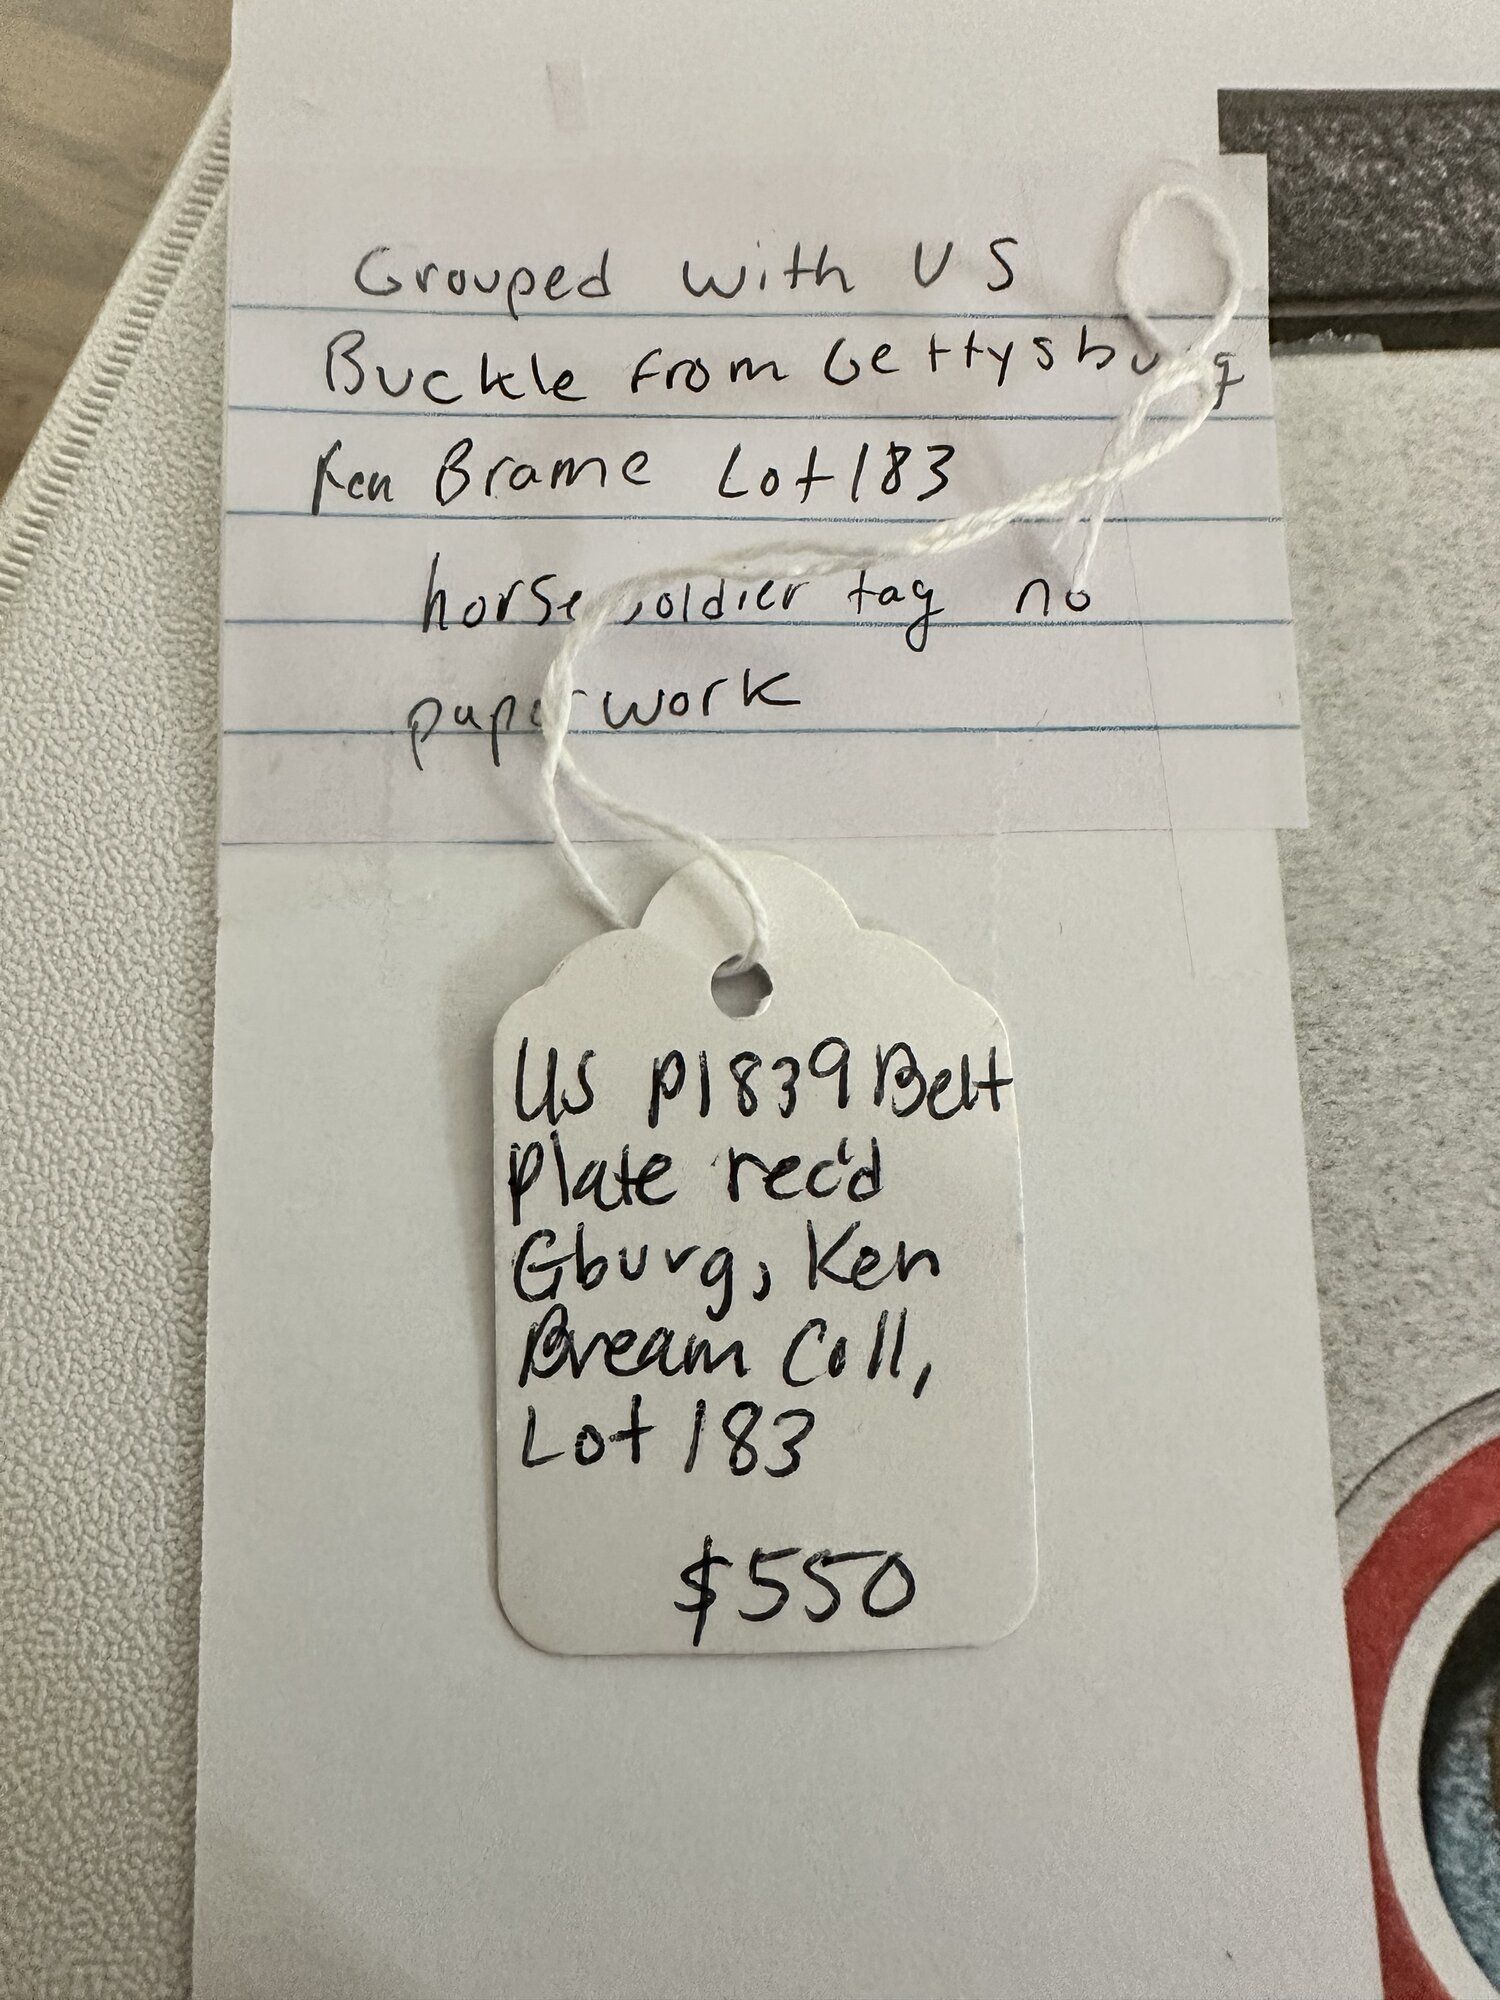 Grouped with US
Buckle from Gettysburg
Ken Brame Lot 183
horse soldier tag no
paperwork
US P1839 Belt
Plate rec'd
Gburg, Ken
Bream Coll,
Lot 183
$550